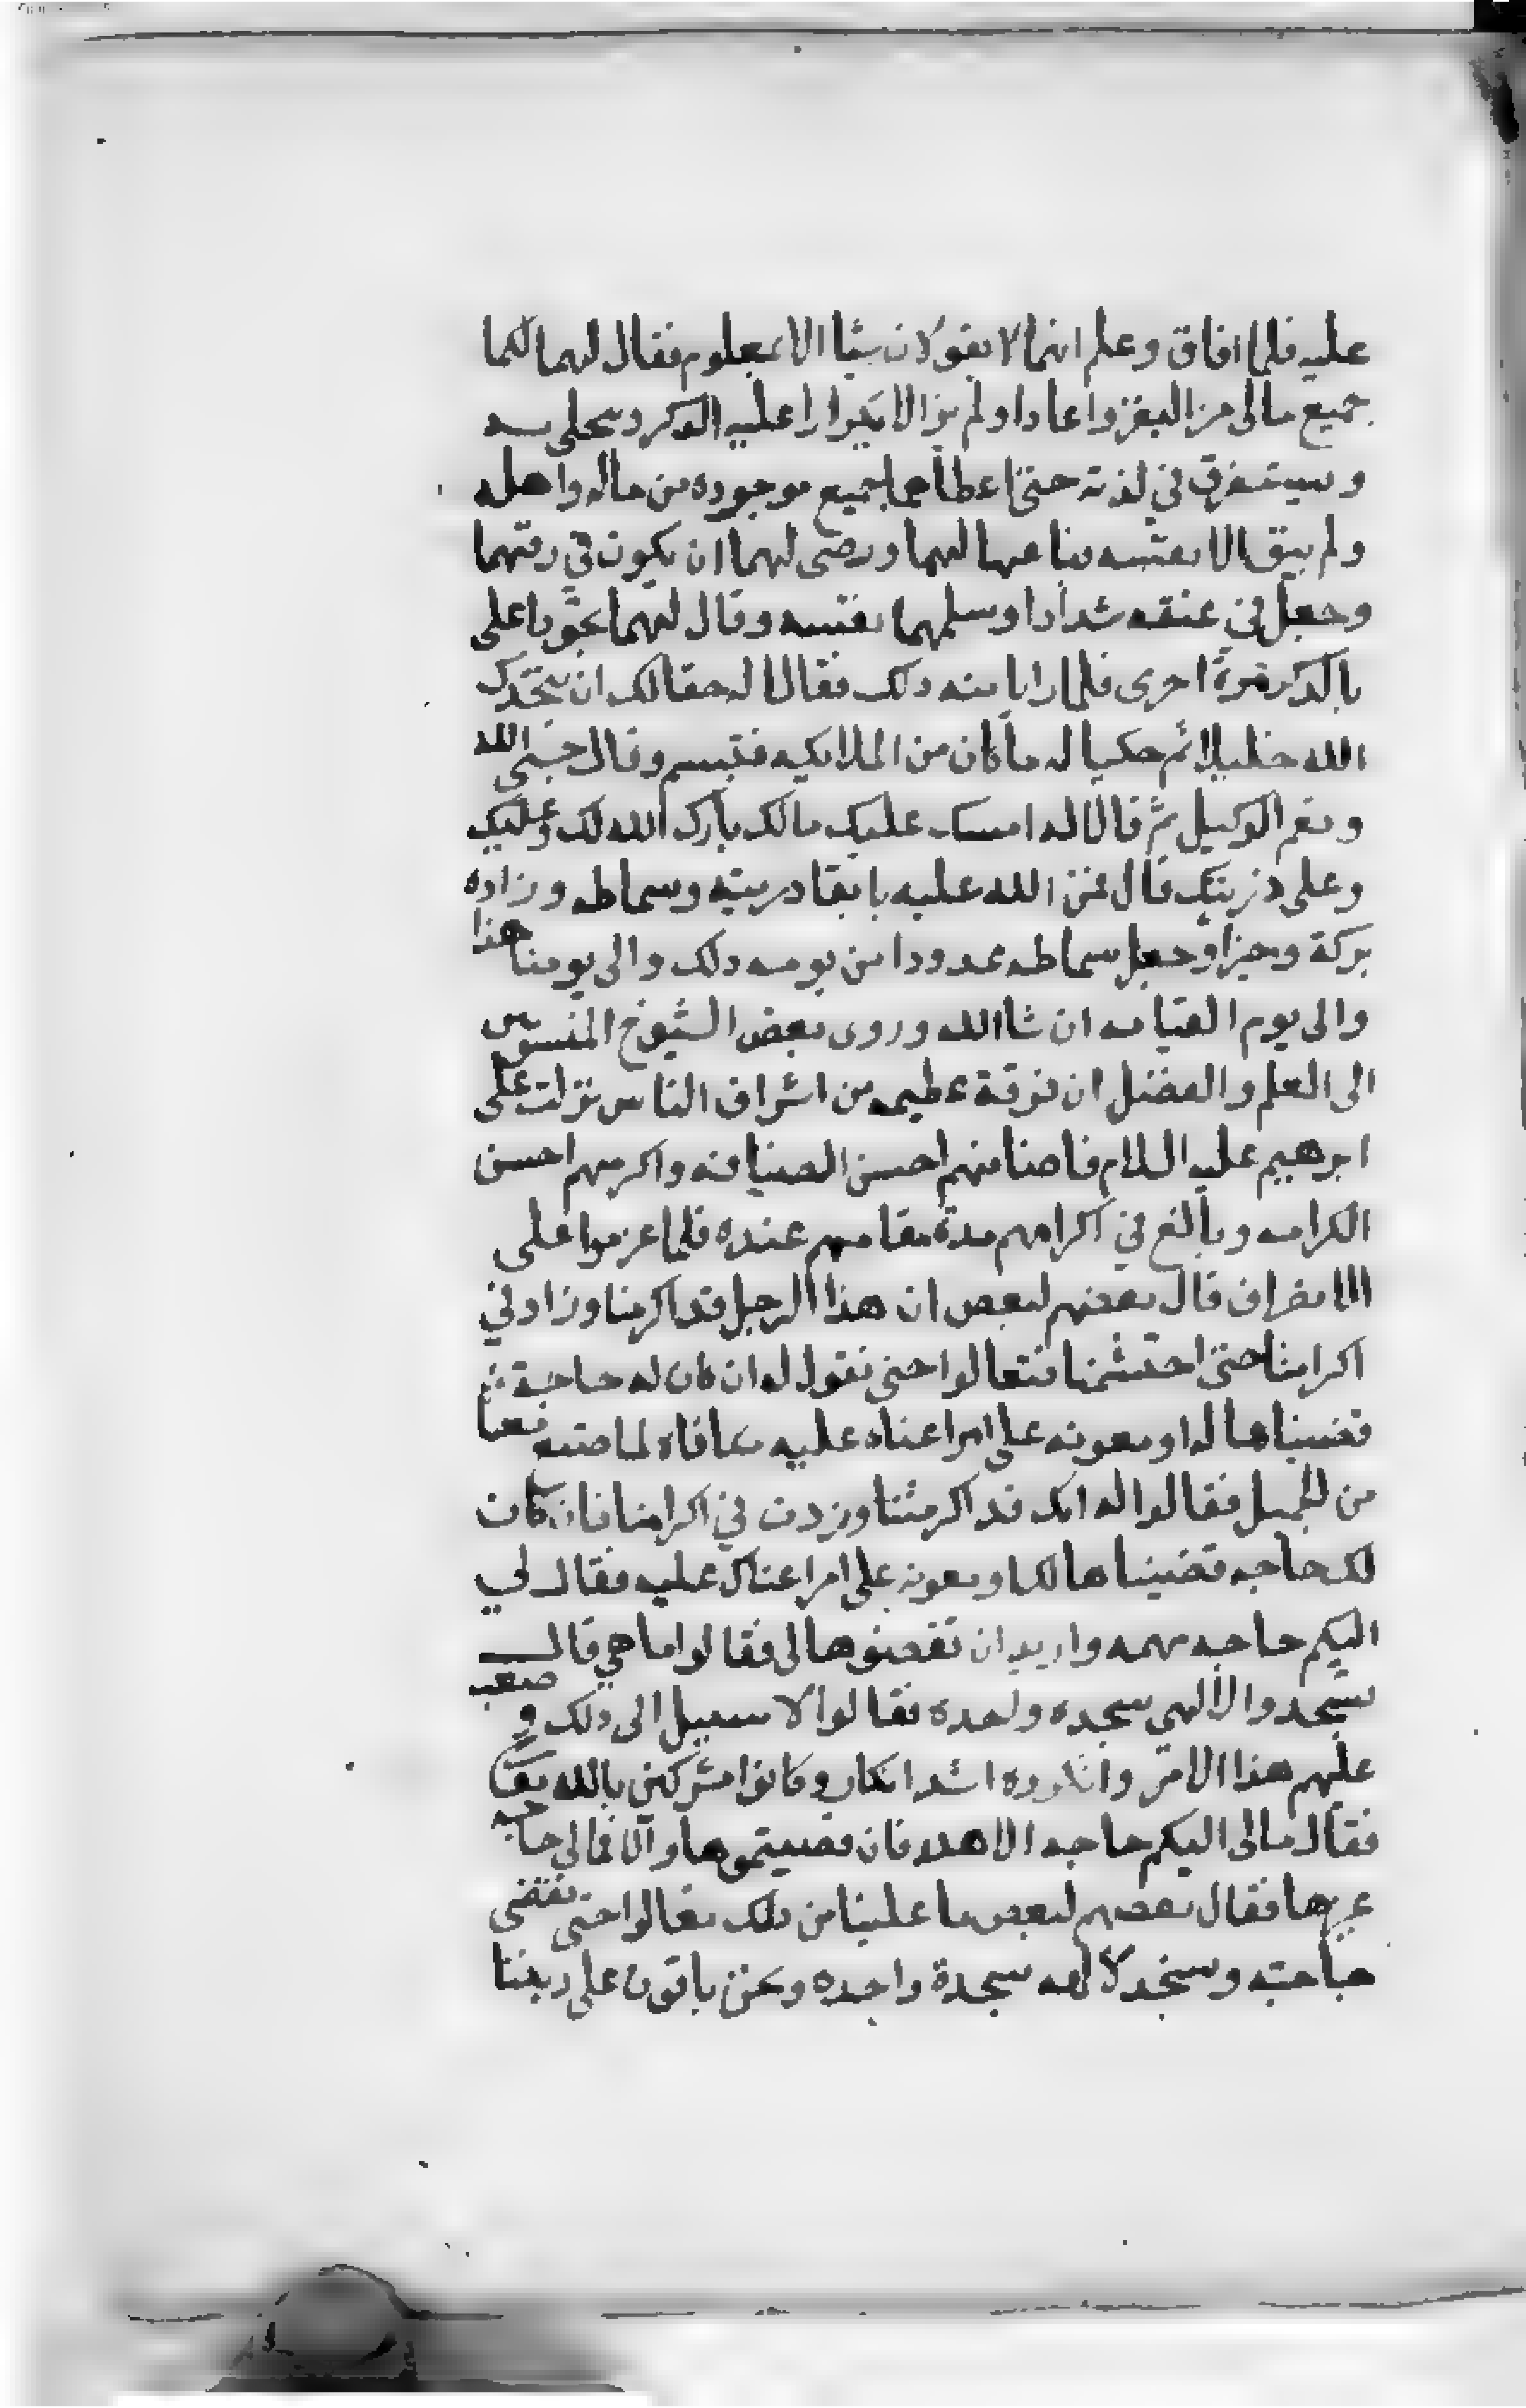 عليه فلما افاق وعلم انهما لا يقولان شيا الا بمعلوم فقال لهما لكما
جميع مالى من البقر واعادا ولم يزالا يكررا عليه الذكر ويتحلى به
ويستغرق في لذته حتى اعطاهما جميع موجوده من ماله واهله
ولم يبق الا نفسه فباعها لهما ورضى لهما ان يكون في رقهما
وجعل في عنقه شدادا وسلمهما نفسه وقال لهما جودا على
بالذكر مرة اخرى فلما رايا منه ذلك فقالا له حقا لك ان يتخدك
الله خليلا ثم حكيا له ما كان من الملايكه فتبسم وقال حسبى الله
ونعم الوكيل ثم قالا له امسك عليك مالك بارك الله لك وعليك
وعلى ذريتك قال فمن الله عليه بابقا دريته وسماطه وزاده
بركة وخيرا وجعل سماطه ممدودا من يومه ذلك والى يومنا هذا
والى يوم القيامه ان شا الله وروى بعض الشيوخ المنسوبين
الى العلم والفضل ان فرقة عظيمه من اشراف الناس نزلت على
ابرهيم عليه السلام فاضافهم احسن الضيافه واكرمهم احسن
الكرامه وبالغ في اكرامهم مدة مقامهم عنده فلما عزموا على
الانصراف قال بعضهم لبعض ان هذا الرجل قد اكرمنا وزاد في
اكرامنا حتى احتشمنا فتعالوا حتى نقول له ان كان له حاجة
قضيناها له او معونه على امر اعناه عليه مكافاه لما صنعه معنا
من الجميل فقالوا له انك قد اكرمتنا وزدت في اكرامنا فان كان
لك حاجه قضيناها لك او معونه على امر اعناك عليه فقال لي
اليكم حاجه مهمه واريد ان تقضوها لى فقالوا ما هي قال
تسجدوا لالهى سجده واحده فقالوا لا سبيل الى ذلك وصعب
عليهم هذا الامر وانكروه اشد انكار وكانوا مشركين بالله تعا
فقال مالى اليكم حاجه الا هذه فان قضيتموها والا فما لى حاجه
غيرها فقال بعضهم لبعض ما علينا من ذلك تعالوا حتى نقضى
حاجته ونسجد لالهه سجدة واحده ونحن باقون على ديننا